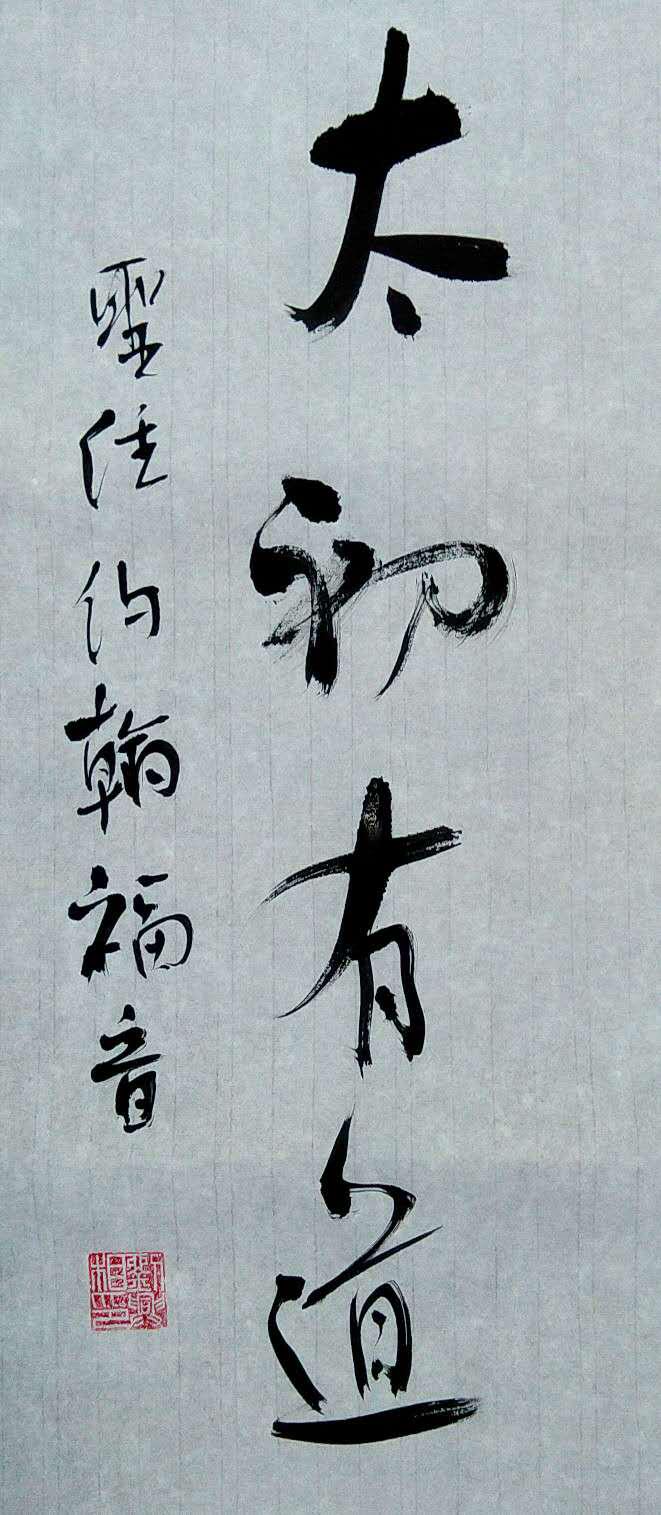 太初有道
聖经约翰福音